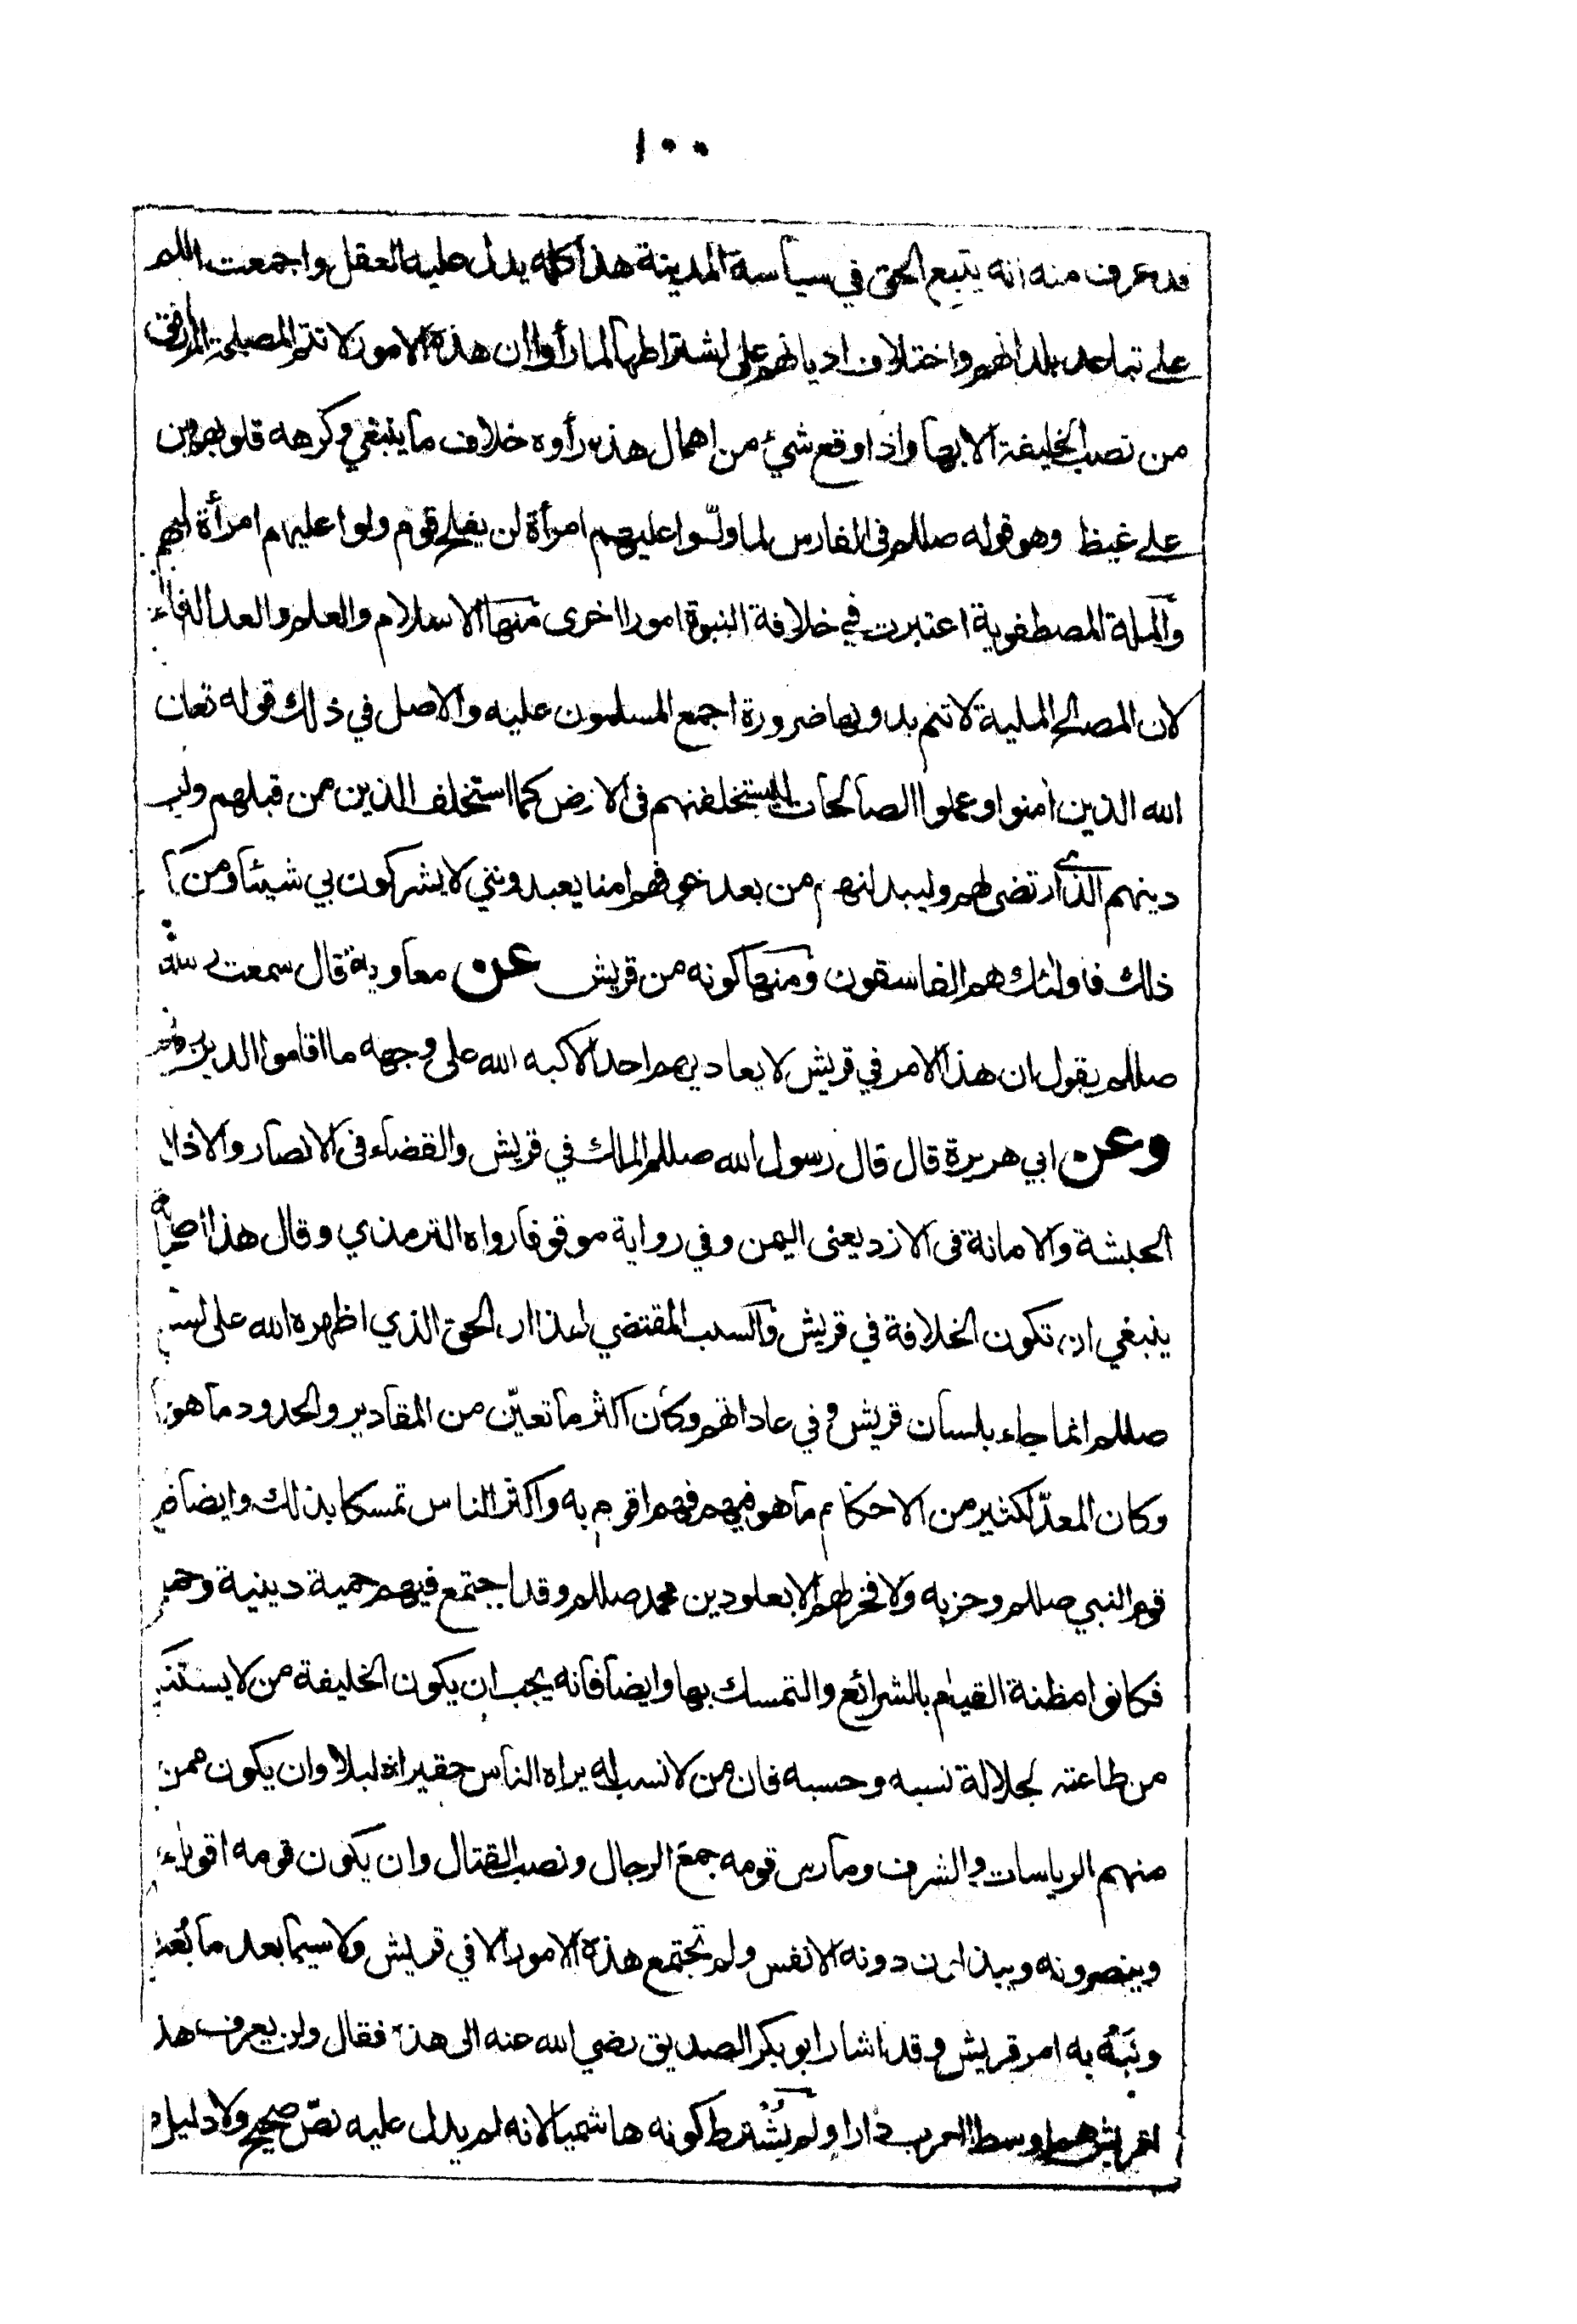 ١٠٠
قد عرف منه انه يتبع الحق في سياسة المدينة هذا كله يدل عليه العقل واجمعت
على تباعد بلدانهم واختلاف اديانهم على اشتراطها لما رأوا ان هذه الامور لا تتم المصلحة
من نصب الخليفة الا بها واذا وقع شيء من اهمال هذه رأوه خلاف ما ينبغي وكرهه قلوبهم
على غيظ وهو قوله صللم في الفارس لما ولّوا عليهم امرأة لن يفلح قوم ولوا عليهم امرأة
والملة المصطفوية اعتبرت في خلافة النبوة امورا اخرى منها الاسلام والعلم والعدالة
لان المصالح الملية لا تتم بدونها ضرورة اجمع المسلمون عليه والاصل في ذلك قوله تعالى
الله الذين امنوا وعملوا الصالحات ليستخلفنهم في الارض كما استخلف الذين من قبلهم
دينهم الذي ارتضى لهم وليبدلنهم من بعد خوفهم امنا يعبدونني لا يشركون بي شيئا ومن
ذلك فاولئك هم الفاسقون ومنها كونه من قريش عن معاوية قال سمعت
صللم يقول ان هذا الامر في قريش لا يعاديهم احد الا كبه الله على وجهه ما اقاموا الدين
وعن ابي هريرة قال قال رسول الله صللم الملك في قريش والقضاء في الانصار والاذان
الحبشة والامانة في الازد يعنى اليمن وفي رواية موقوفا رواه الترمذي وقال هذا اصح
ينبغي ان تكون الخلافة في قريش والسبب المقتضي لهذا ان الحق الذي اظهره الله على
صللم انما جاء بلسان قريش وفي عاداتهم وكان اكثر ما تعيّن من المقادير والحدود ما هو
وكان المعدّ لكثير من الاحكام ما هو فيهم فهم اقوم به واكثر الناس تمسكا بذلك وايضا
قوم النبي صللم وحزبه ولا فخر لهم الا بعلو دين محمد صللم وقد اجتمع فيهم حمية دينية
فكانوا مظنة القيام بالشرائع والتمسك بها وايضا فانه يجب ان يكون الخليفة من لا يستنكف
من طاعته لجلالة نسبه وحسبه فان من لا نسب له يراه الناس حقيرا ذليلا وان يكون ممن
منهم الرياسات والشرف ومارس قومه جمع الرجال ونصب القتال وان يكون قومه اقوياء
وينصرونه ويبذلون دونه الانفس ولم تجتمع هذه الامور الا في قريش ولا سيما بعد ما بُعث
ونَبُهَ به امر قريش وقد اشار ابو بكر الصديق رضي الله عنه الى هذه فقال ولن يعرف هذ
لقريش هم اوسط العرب دارا ولم يُشترط كونه هاشميا لانه لم يدل عليه نصّ صحيح ولا دليل